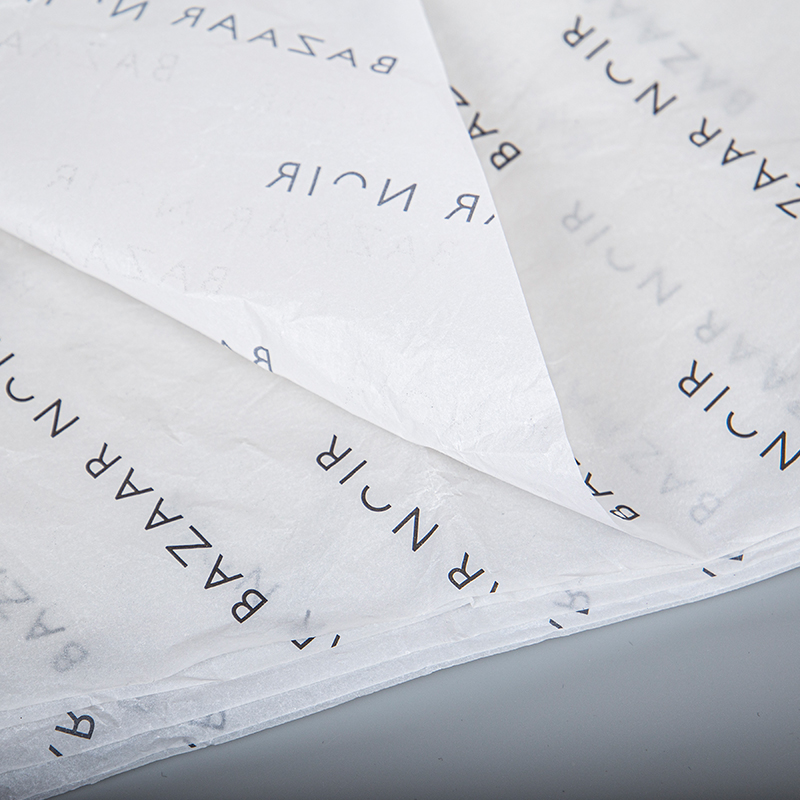 BAZAAR NOIR
NOIR
BAZAAR NOIR
BAZAAR NOIR
BAZAAR NOIR
NOIR
NOIR